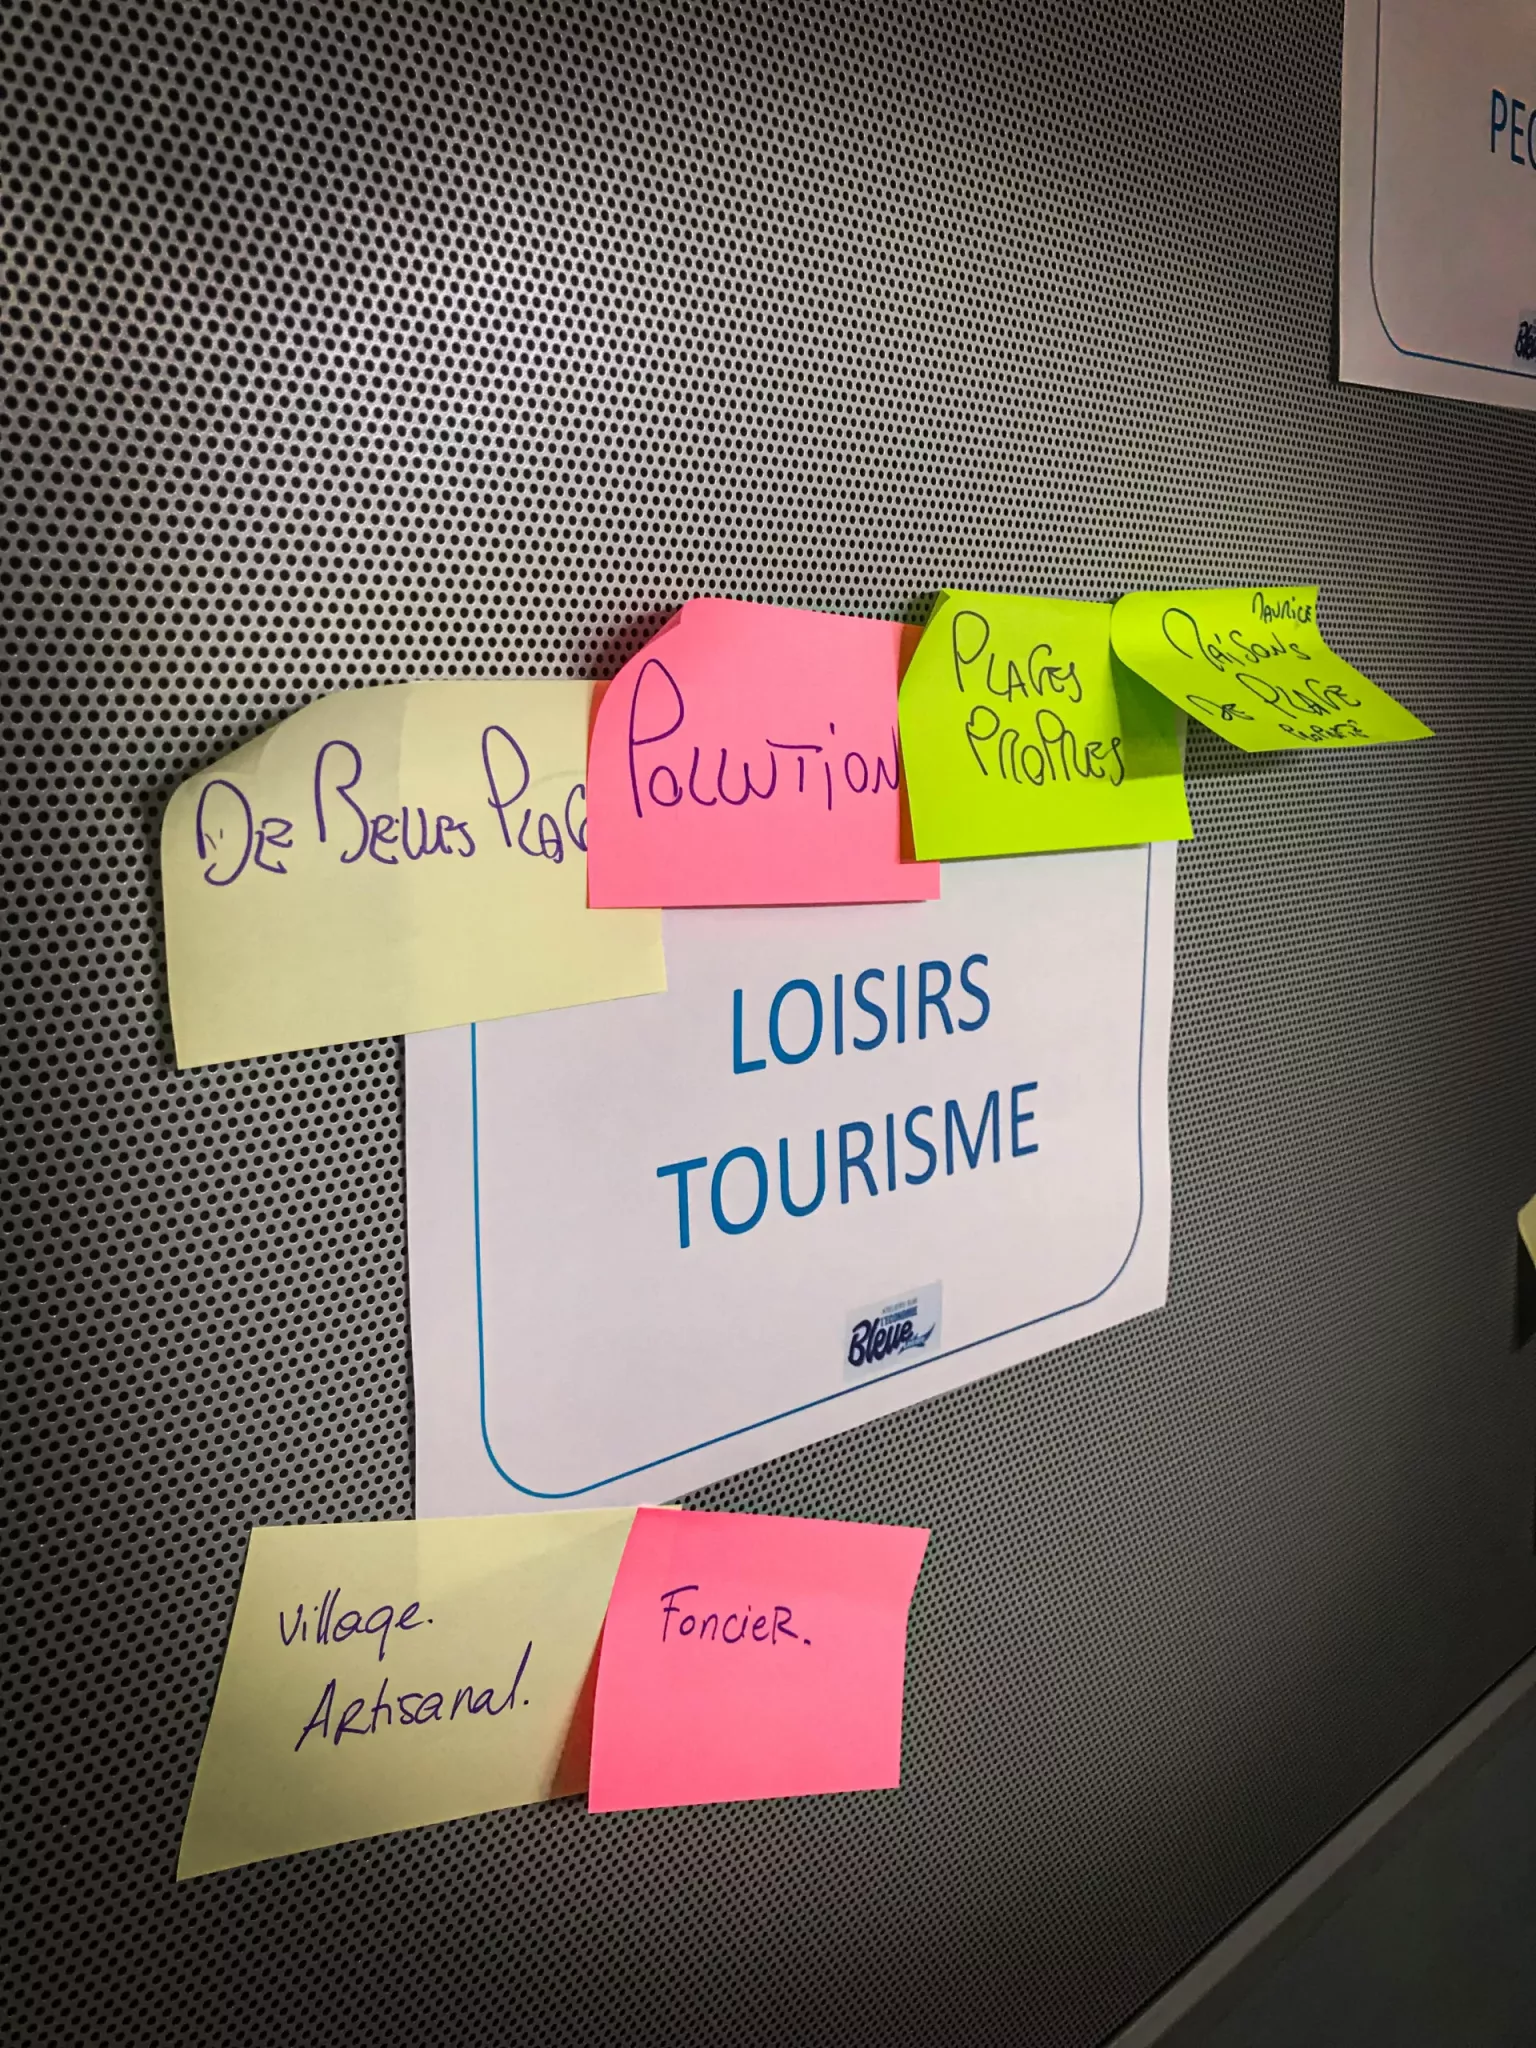 PEC
DE BELLES PLAG
POLLUTION
PLAGES
PROPRES
MAURICE
MAISONS
DE PLAGE
LOISIRS
TOURISME
ATELIERS SUR
L'ECONOMIE
Bleue
Village.
Artisanal.
FoncieR.